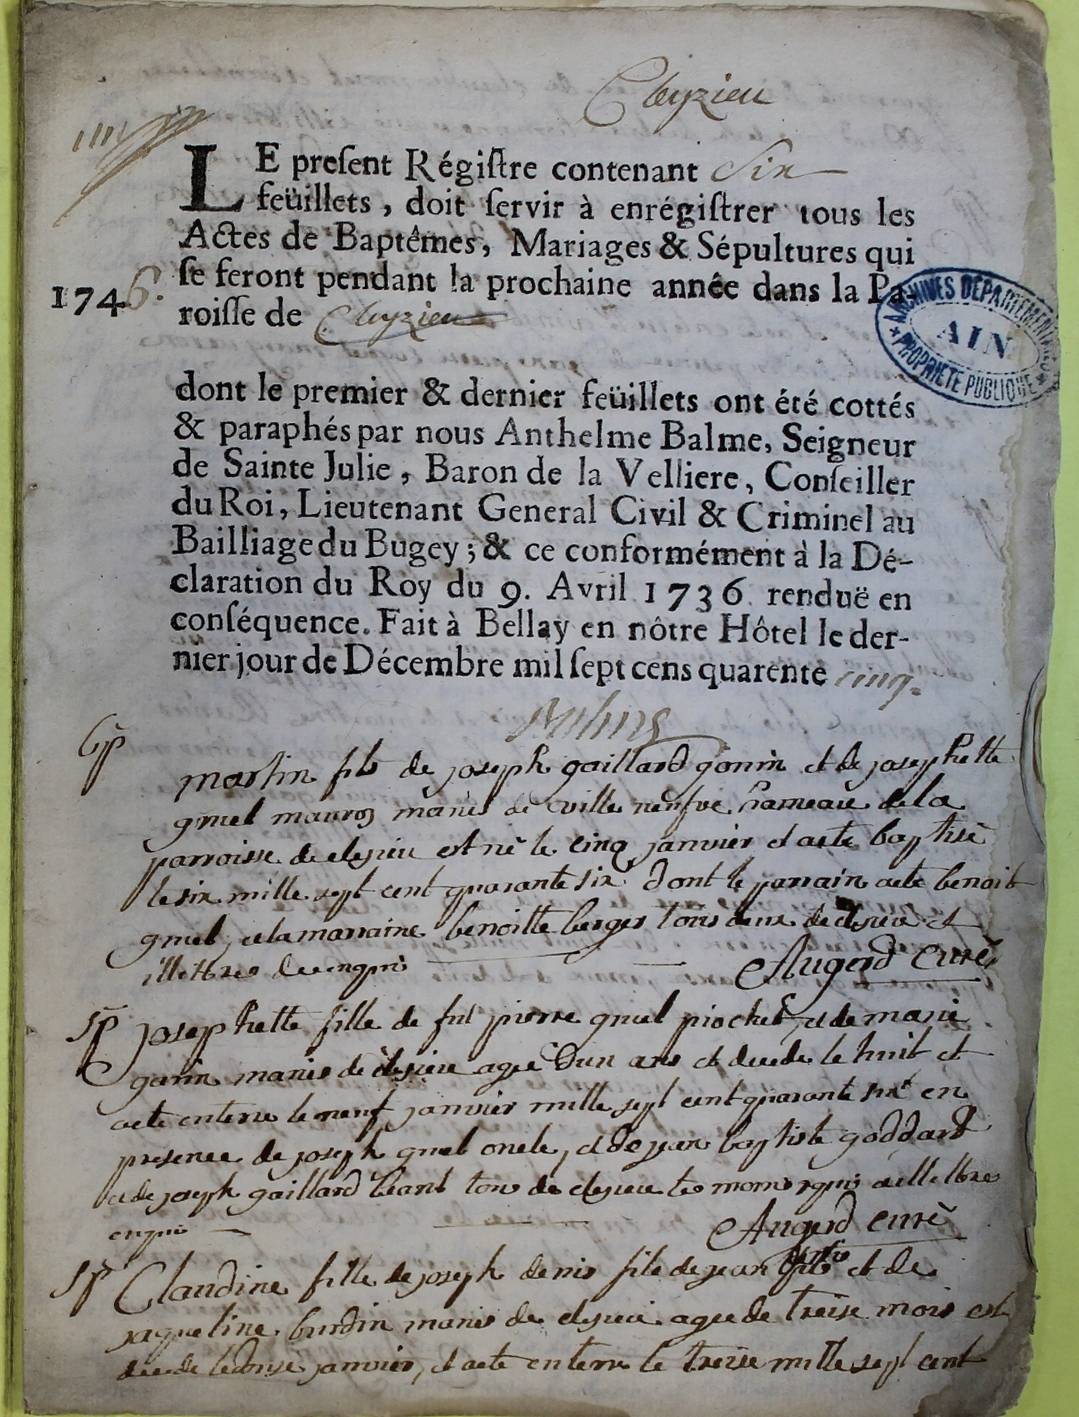 Cleyzieu
LE present Régistre contenant Six
feüillets, doit servir à enrégistrer tous les
Actes de Baptêmes, Mariages & Sépultures qui
se feront pendant la prochaine année dans la Pa-
1746.
roisse de Cleyzieu
ARCHIVES DÉPARTEMENTALES
AIN
PROPRIÉTÉ PUBLIQUE
dont le premier & dernier feüillets ont été cottés
& paraphés par nous Anthelme Balme, Seigneur
de Sainte Julie, Baron de la Velliere, Conseiller
du Roi, Lieutenant General Civil & Criminel au
Bailliage du Bugey; & ce conformément à la Dé-
claration du Roy du 9. Avril 1736. renduë en
conséquence. Fait à Bellay en nôtre Hôtel le der-
nier jour de Décembre mil sept cens quarente cinq.
Bp
martin fils de joseph gaillard gonin et de josephette
gruel mariés de ville neufve hameau de la
parroisse de clesieu est né le cinq janvier et aeté baptisé
le six mille sept cent quarante six dont le parrain aeté benoit
gruel, et la marraine benoitte berger tous deux de clesieu et
illettres de enquis Augerd curé
Sp
josephette fille de fut pierre gruel piochet et de marie
garin mariés de clesieu agée dun ans et decedé le huit et
aeté enterré le neuf janvier mille sept cent quarante six en
presence de joseph gruel oncle, et de jean baptiste goddard
et de joseph gaillard tous de clesieu temoins requis et illettres
enquis Augerd curé
Sp
Claudine fille de joseph denis fils de jean et de
jaqueline burdin mariés de clesieu agée de treise mois est
decedé le douse janvier, et aeté enterré le treise mille sept cent